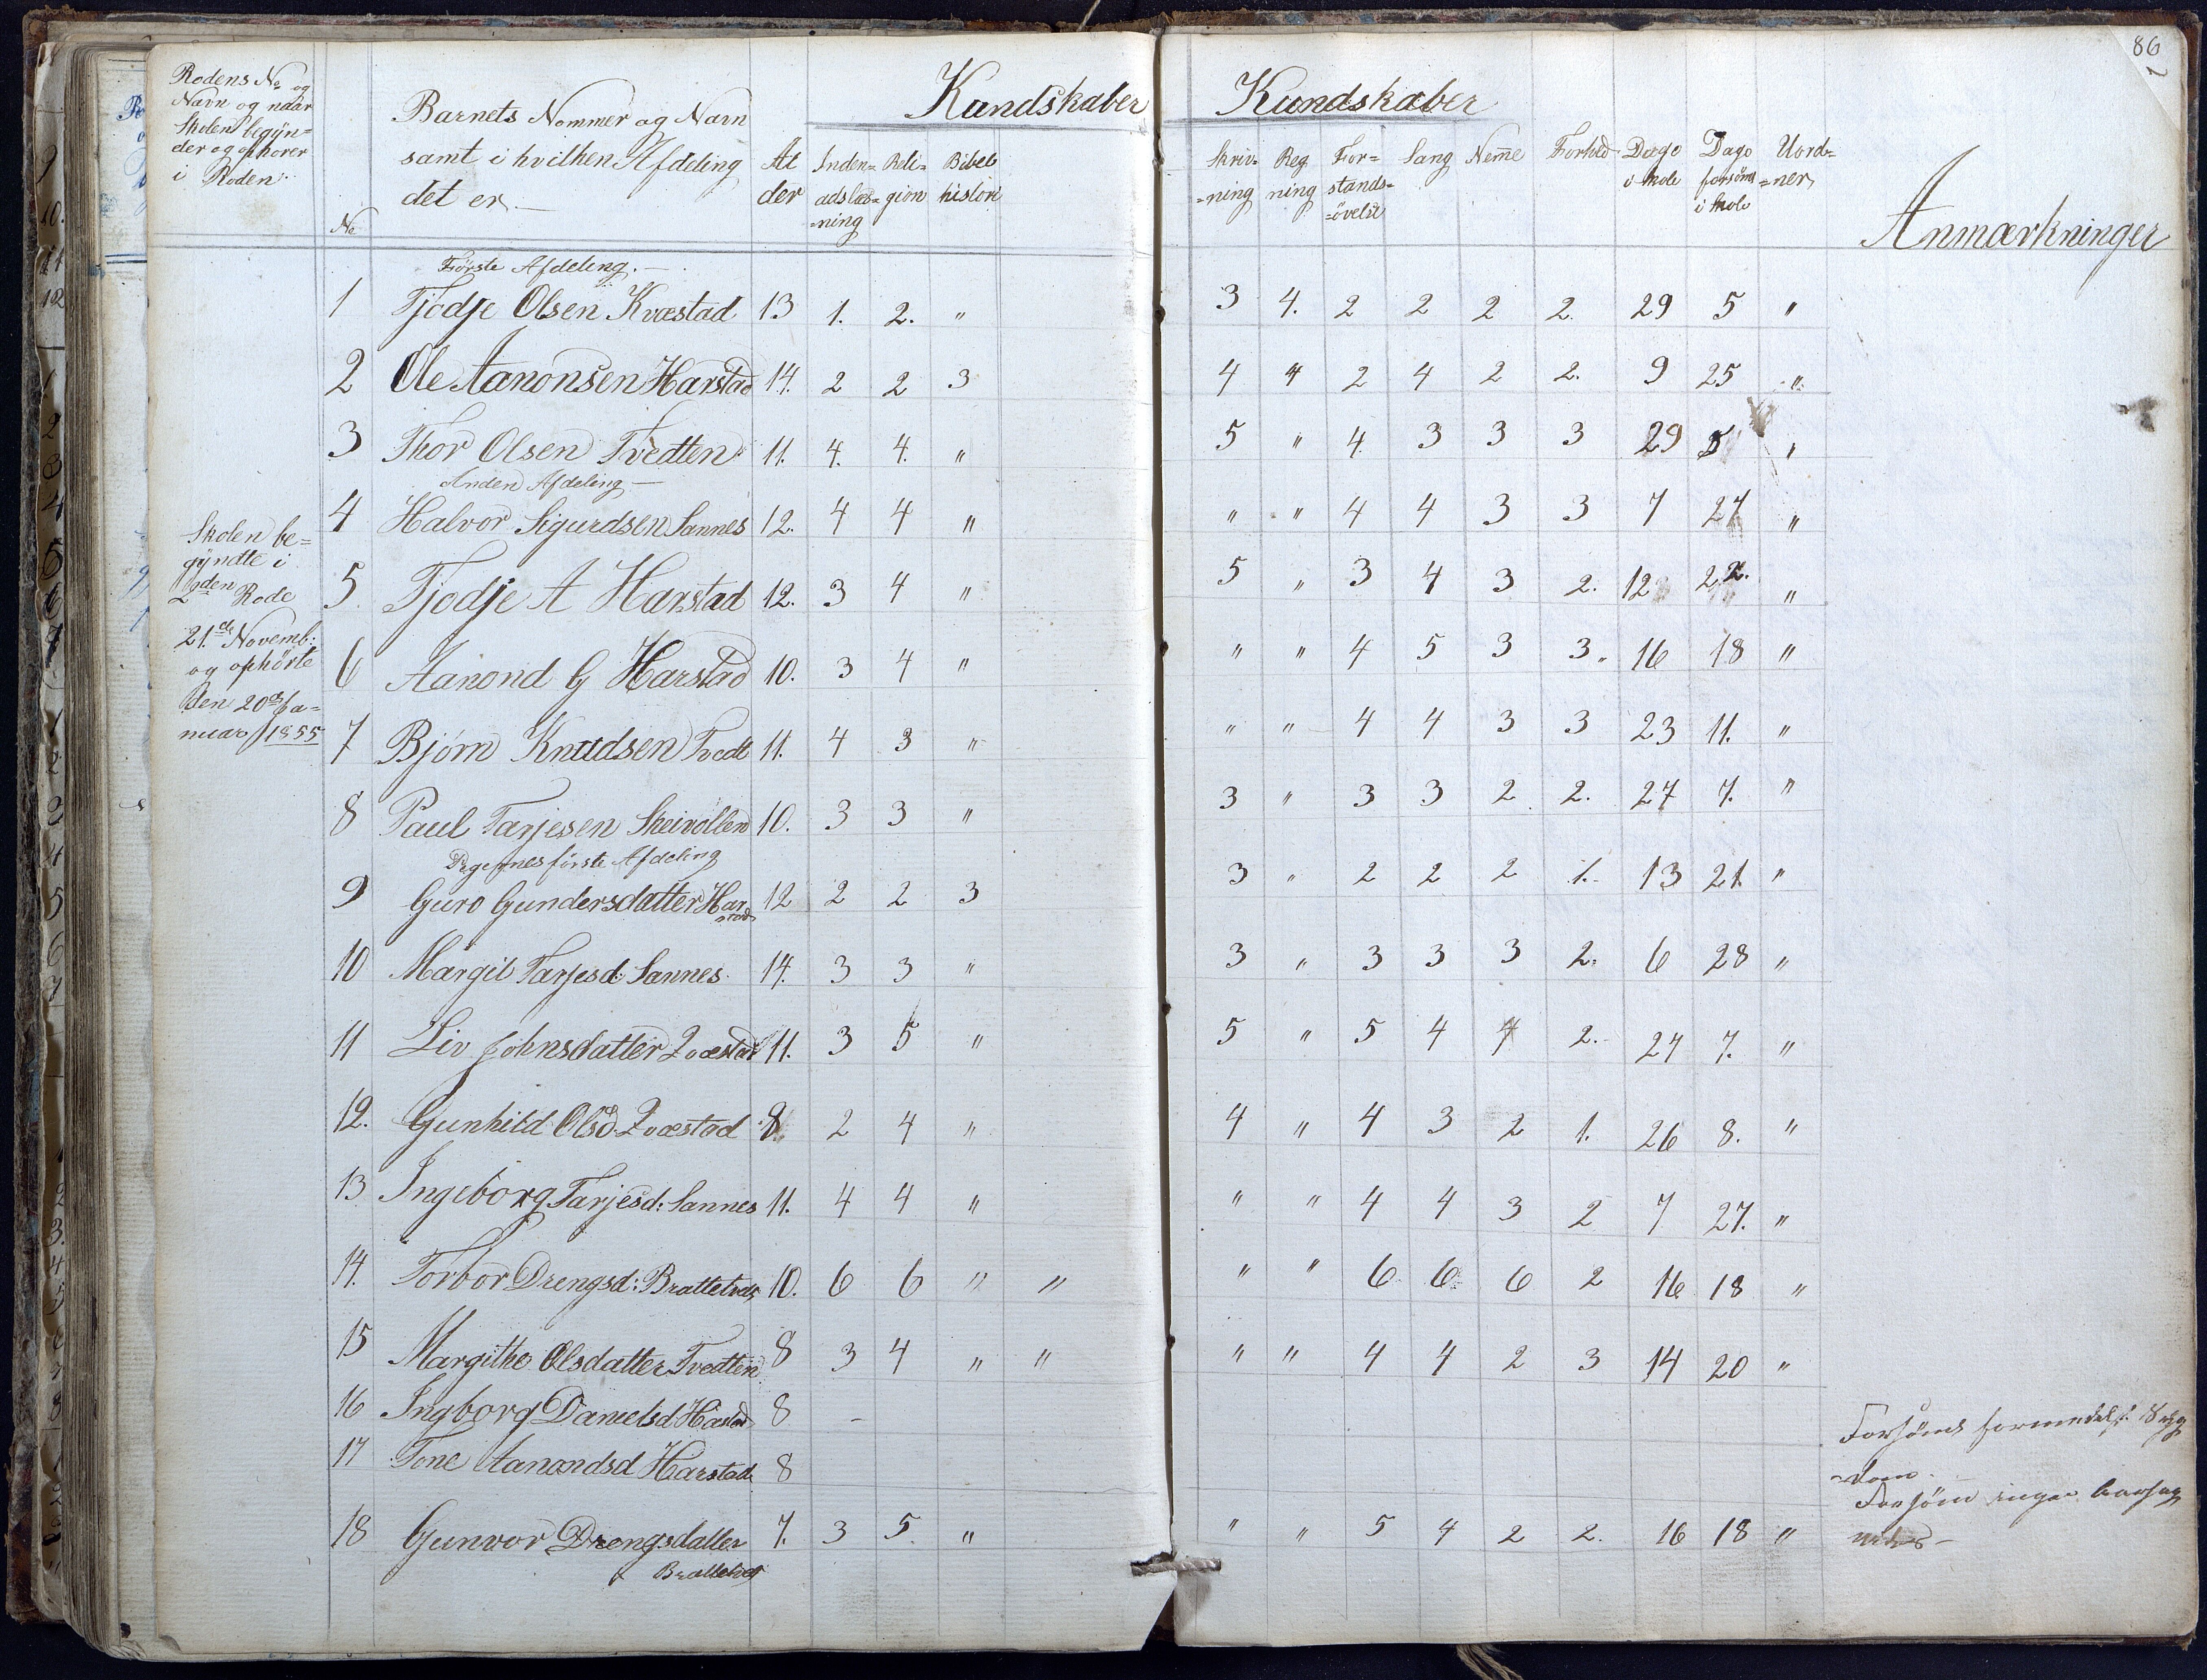 86
Rodens No og
Navn og naar
Skolen begÿn=
der og ophører
i Roden
No
Barnets Nommer og Navn
samt i hvilken Afdeling
det er
Al
der
Kundskaber
Inden=
adslæs=
=ning
Reli=
gion
Bibel
histori
Kundskaber
Skriv=
=ning
Reg
ning
For=
stands=
=övelse
Sang
Nem̄e
Forhld
Dage
i skole
Dage
forsömt
i skole
Uord=
=ner
Anmærkninger
Förste Afdeling.
1 Tjodje Olsen Kvæstad 13 1. 2. " 3 4. 2 2 2 2. 29 5 "
2 Ole Aanonsen Harstad 14. 2 2 3 4 4 2 4 2 2. 9 25 "
3 Thor Olsen Tvedten 11. 4. 4. " 5 " 4. 3 3 3 29 5 "
Anden Afdeling
4 Halvor Sigurdsen Sannes 12. 4 4 " " " 4 4 3 3 7 27 "
5 Tjodje A Harstad 12. 3 4 " 5 " 3 4 3 2. 12 22. "
6 Aanond G Harstad 10. 3 4 " " " 4 5 3 3. 16 18 "
7 Bjørn Knudsen Tvedt 11. 4 3 " " " 4 4 3 3 23 11. "
8 Paul Tarjesen Skeivollen 10. 3 3 " 3 " 3 3 2 2. 27 7. "
Skolen be=
gÿndte i
2den Rode
21.de Novemb:
og ophörte
den 20de Ja=
nuar 1855
Pigernes förste Afdeling
9 Guro Gundersdatter Har
stad 12 2 2 3 3 " 2 2 2 1. 13 21. "
10 Margit Tarjesd: Sannes 14. 3 3 " 3 " 3 3 3 2. 6 28 "
11 Liv Johnsdatter Qvæstad 11. 3 5 " 5 " 5 4 4 2. 27 7. "
12. Gunhild Olsd. Qvæstad 8. 2 4 " 4 " 4 3 2 1. 26 8. "
13 Ingeborg Tarjesd: Sannes 11. 4 4 " " " 4 4 3 2 7 27. "
14. Torbor Drengsd: Brattetvedt 10. 6 6 " " " " 6 6 6 2 16 18 "
15 Margithe Olsdatter Tvedten 8 3 4 " " " " 4 4 2 3 14 20 "
16 Ingborg Danielsd Hastad 8 - Forsömt formedelst Syg
=dom.
17 Tone Aanondsd Harstad 8 Forsömt ingen Aarsag
18 Gunvor Drengsdatter
Brattetvedt 7. 3 5. " " " 5 4 2 2. 16 18 "